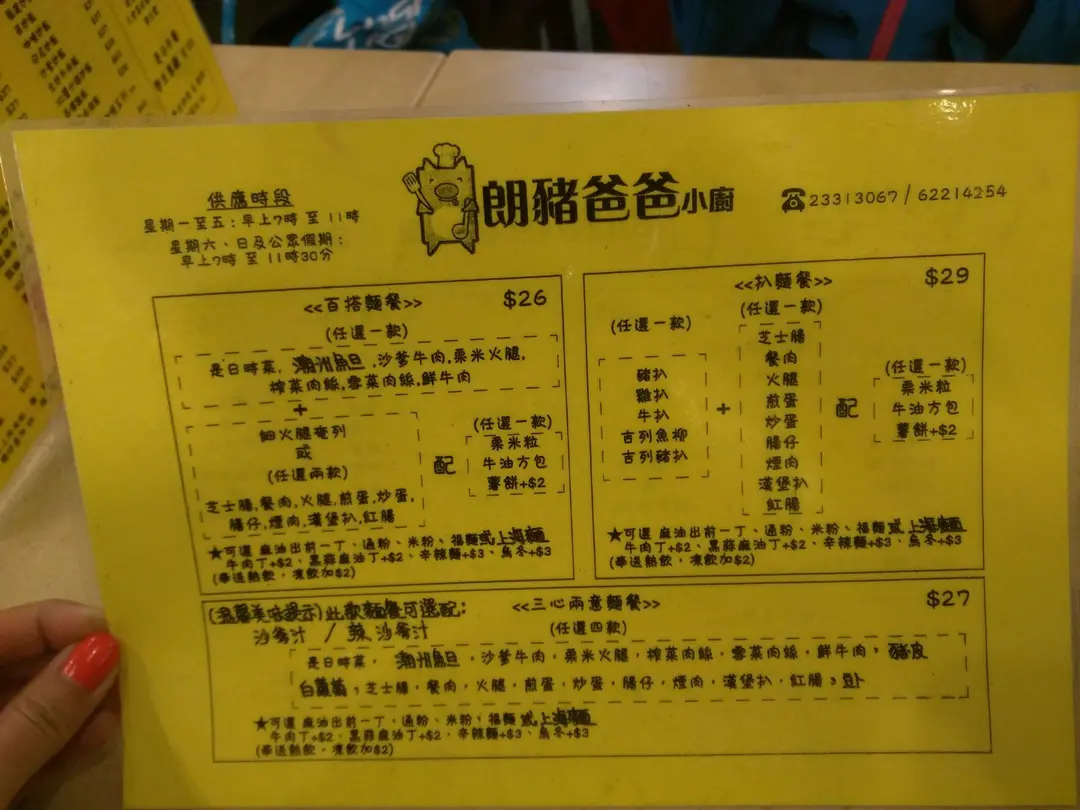 供應時段
星期一至五：早上7時 至 11時
星期六、日及公眾假期：
早上7時 至 11時30分
朗豬爸爸小廚
☎23313067 / 62214254
<<百搭麵餐>> $26
(任選一款)
是日時菜, 潮州魚旦,沙爹牛肉,粟米火腿,
榨菜肉絲,雪菜肉絲,鮮牛肉
+
細火腿奄列
或
(任選兩款)
芝士腸,餐肉,火腿,煎蛋,炒蛋,
腸仔,煙肉,漢堡扒,紅腸
配
(任選一款)
粟米粒
牛油方包
薯餅+$2
★可選 麻油出前一丁、通粉、米粉、福麵或上海麵
牛肉丁+$2、黑蒜麻油丁+$2、辛辣麵+$3、烏冬+$3
(奉送熱飲，凍飲加$2)
<<扒麵餐>> $29
(任選一款)
豬扒
雞扒
牛扒
吉列魚柳
吉列豬扒
+
(任選一款)
芝士腸
餐肉
火腿
煎蛋
炒蛋
腸仔
煙肉
漢堡扒
紅腸
配
(任選一款)
粟米粒
牛油方包
薯餅+$2
★可選 麻油出前一丁、通粉、米粉、福麵或上海麵
牛肉丁+$2、黑蒜麻油丁+$2、辛辣麵+$3、烏冬+$3
(奉送熱飲，凍飲加$2)
(溫馨美味提示)此款麵餐可選配：
沙爹汁 / 辣沙爹汁
<<三心兩意麵餐>> $27
(任選四款)
是日時菜， 潮州魚旦，沙爹牛肉，粟米火腿，榨菜肉絲，雪菜肉絲，鮮牛肉，豬皮
白蘿蔔，芝士腸，餐肉，火腿，煎蛋，炒蛋，腸仔，煙肉，漢堡扒，紅腸，豆卜
★可選 麻油出前一丁、通粉、米粉，福麵或上海麵
牛肉丁+$2、黑蒜麻油丁+$2、辛辣麵+$3、烏冬+$3
(奉送熱飲，凍飲加$2)